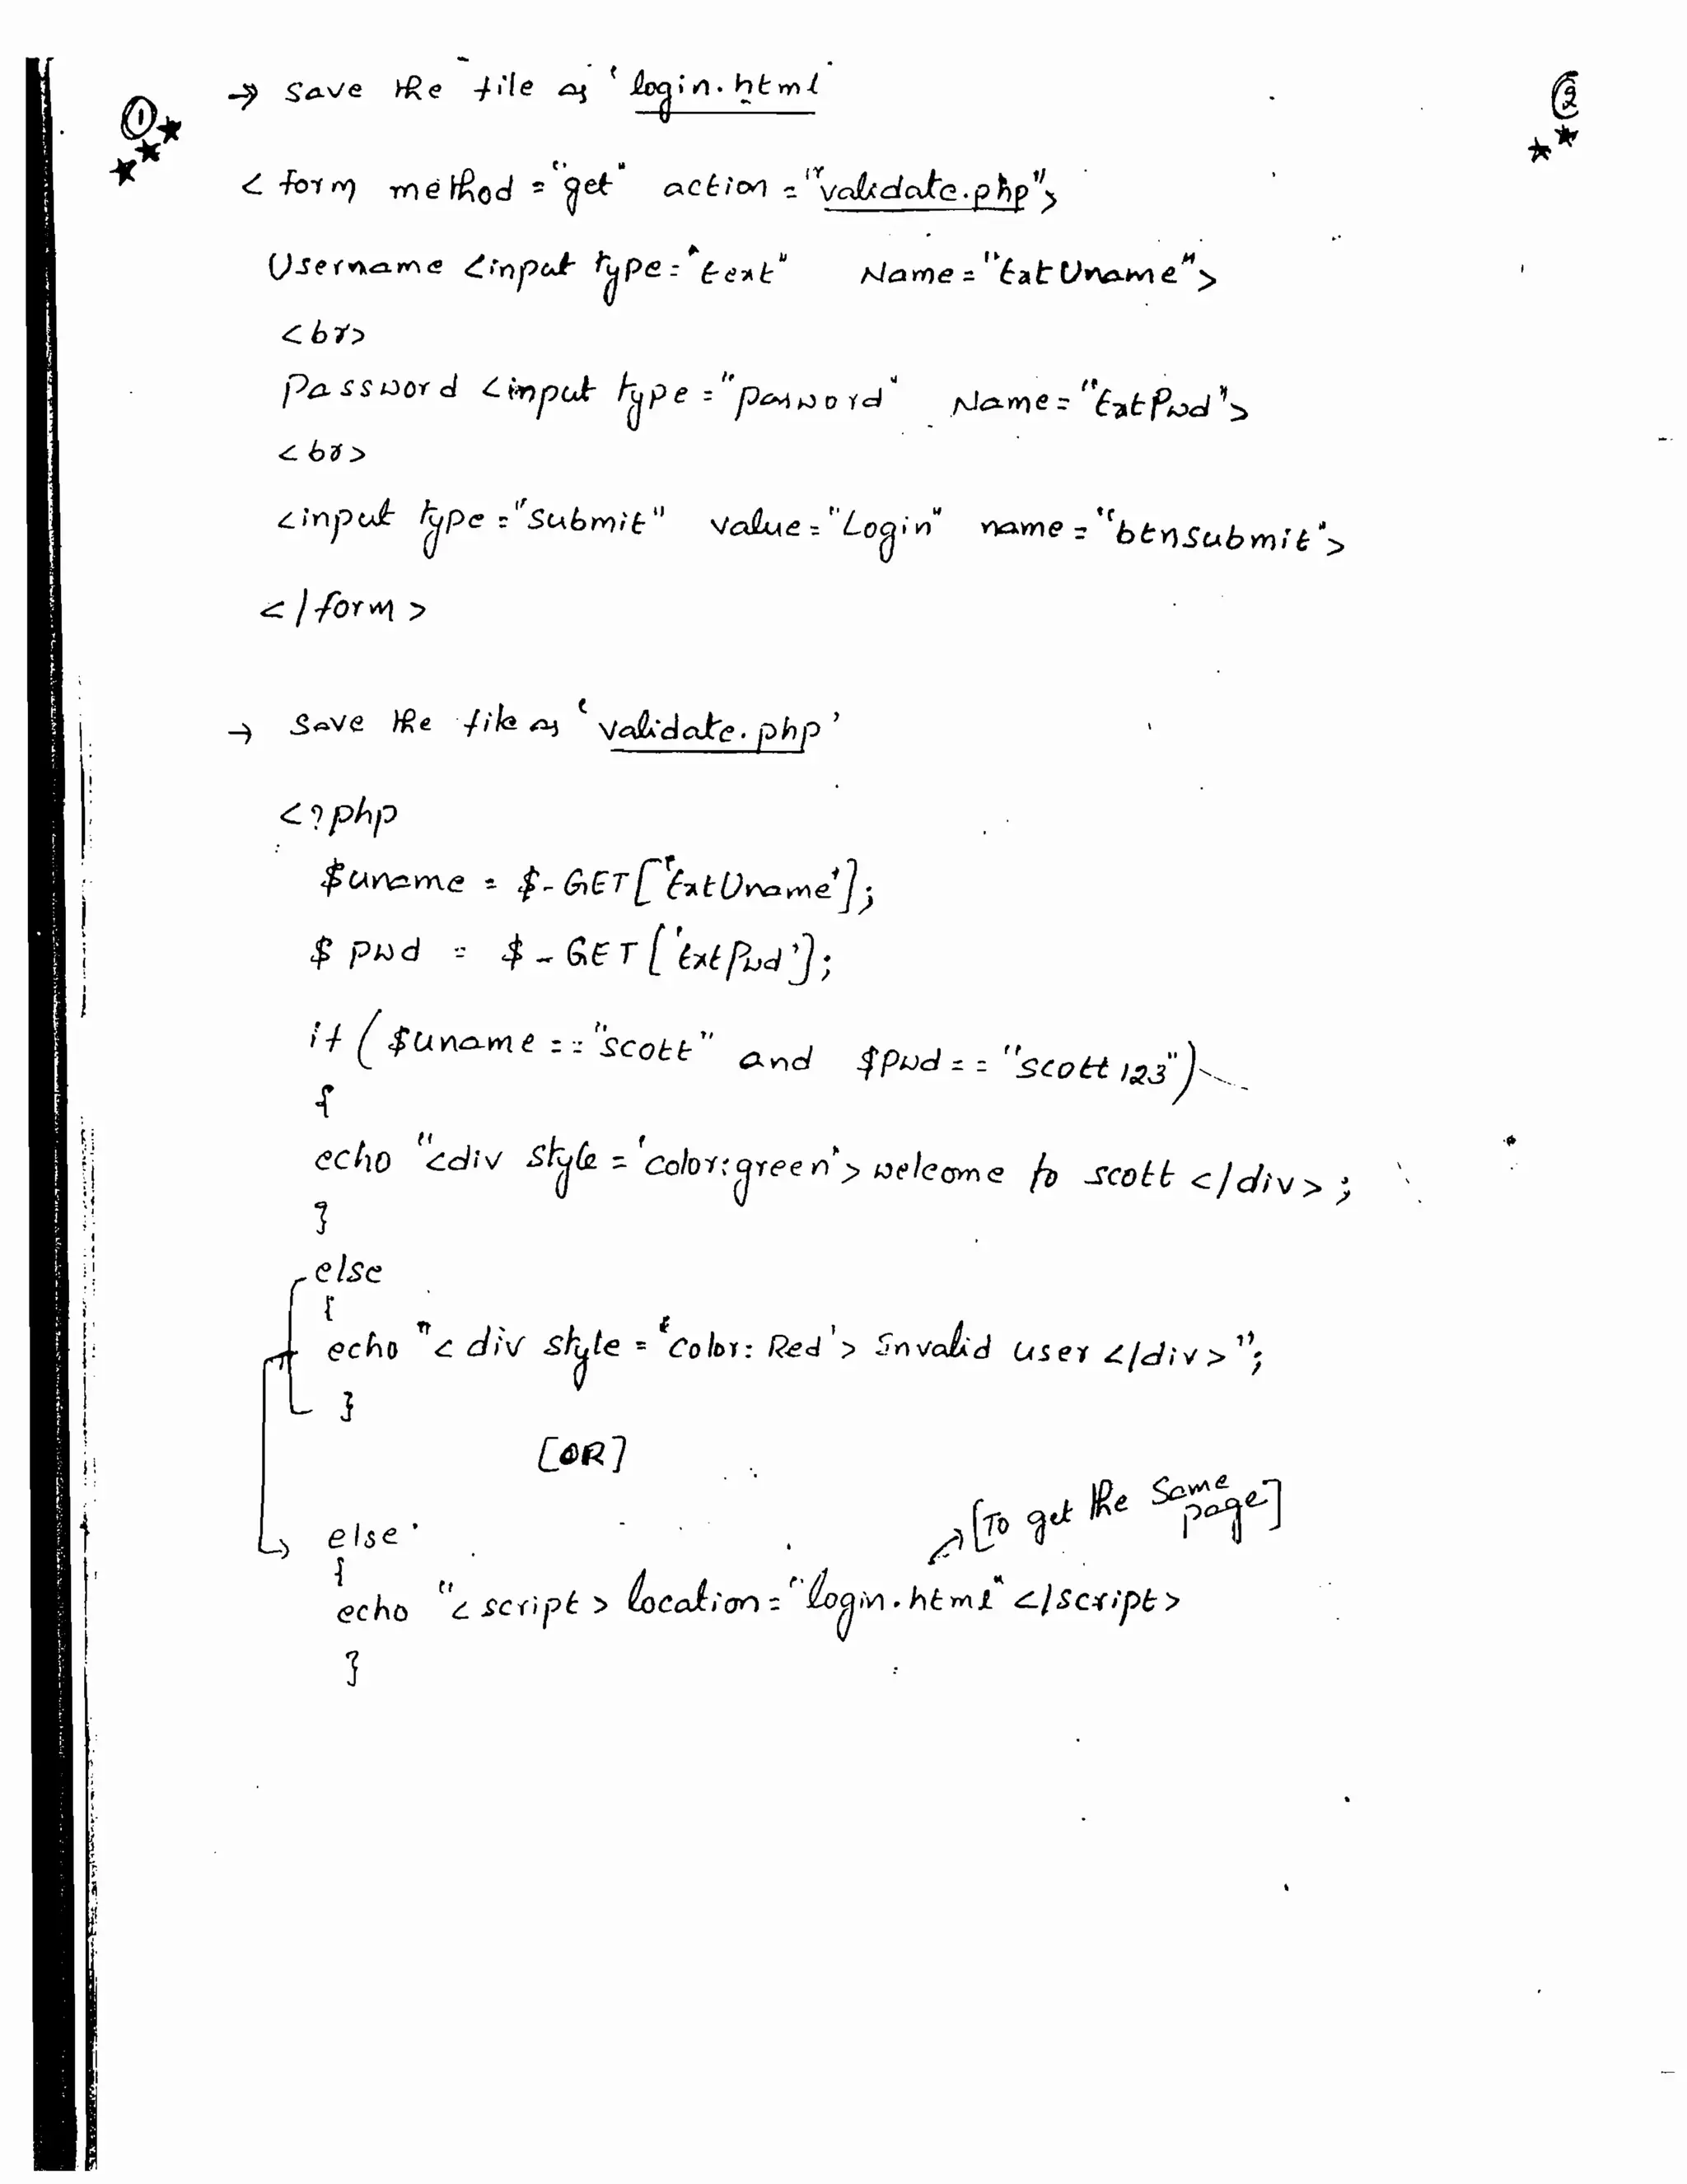 ① → Save the file as 'login.html' ②
< form method = "get" action = "validate.php">
Username <input type = "text" Name = "txtUname">
<br>
Password <input type = "password" Name = "txtPwd">
<br>
<input type = "submit" value = "Login" name = "btnsubmit">
</form>
→ Save the file as 'validate.php'
<?php
$uname = $_GET['txtUname'];
$pwd = $_GET['txtPwd'];
if ($uname == "scott" and $pwd == "scott123")
{
echo "<div style = 'color:green'> welcome to scott </div> ;
}
else
{
echo "< div style = 'color: Red'> Invalid user </div> ";
}
[OR]
[To get the Same page]
else
{
echo "< script > location = "login.html" </script>
}